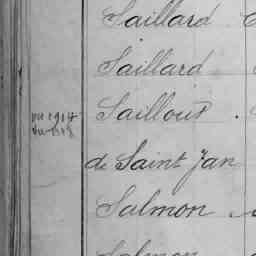 Saillard
Saillard
Saillous
de Saint Jan
Salmon
Salmon